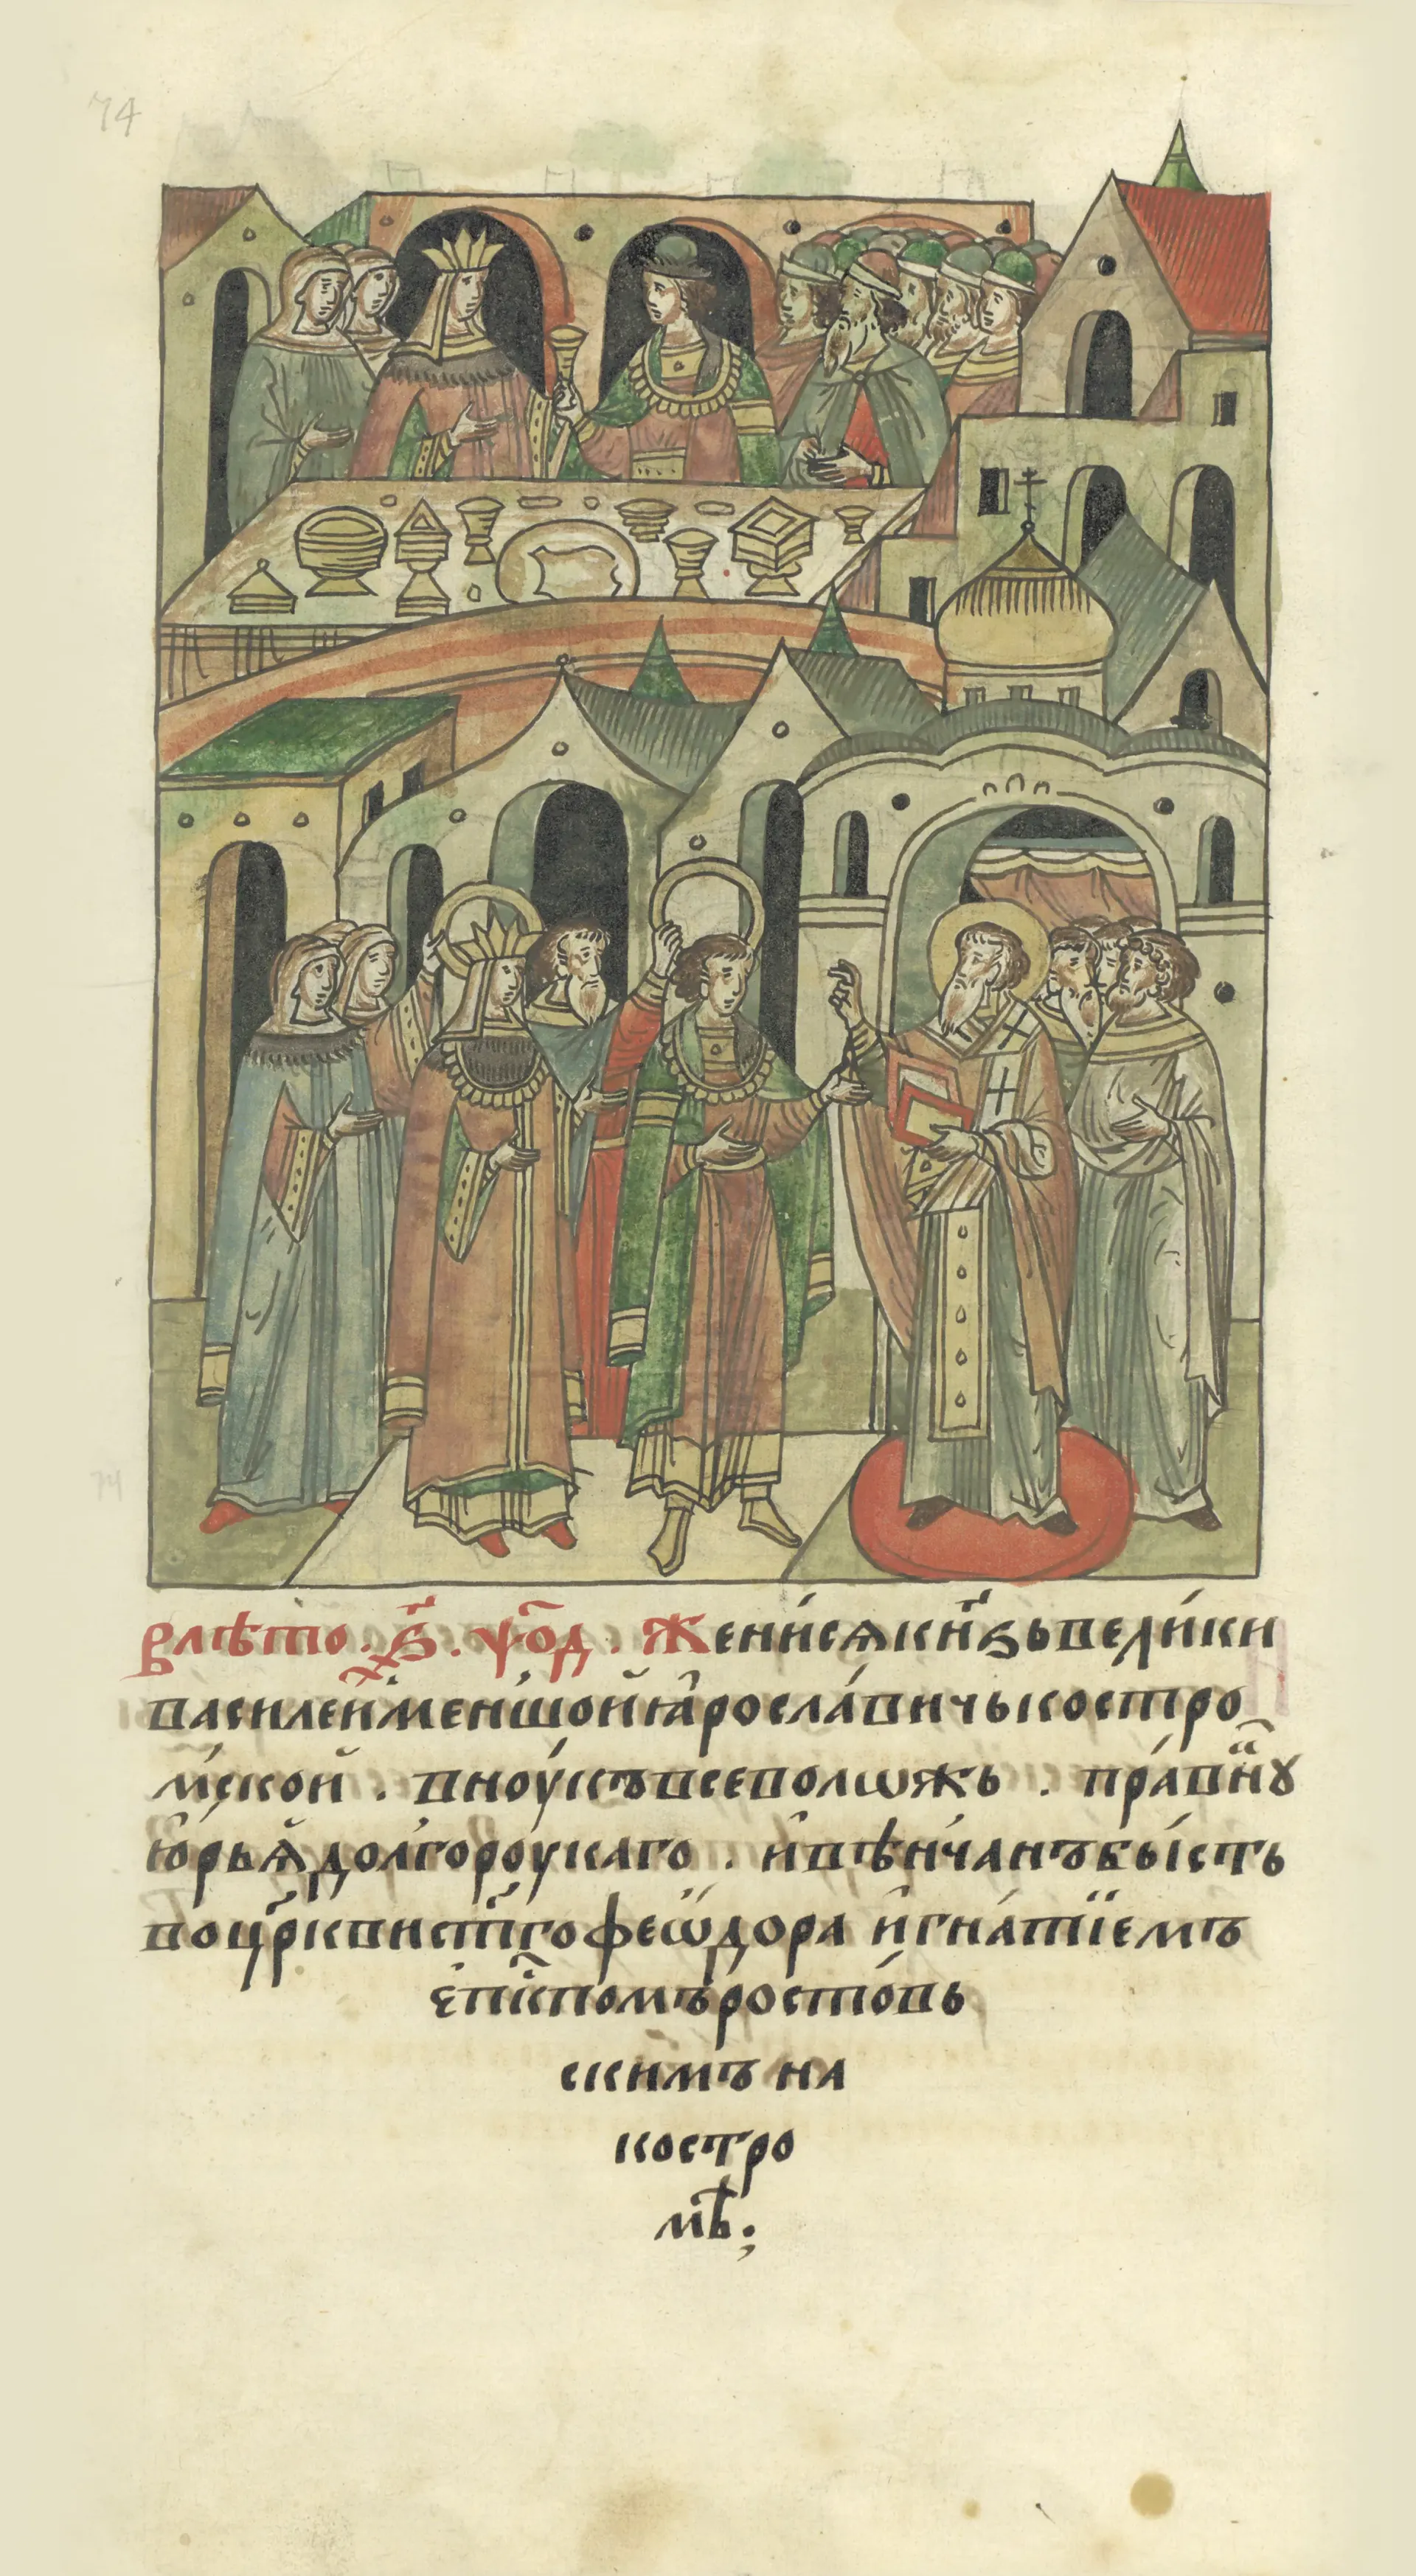 74
влѣто . ҂ѕ҃ . ѱ҃о҃д . Жени́сѧкн҃ѕьвели́ки
василейме́ншойꙗросла́вичькостро
мско́й . вноу́къвсеволѡжь . пра́внꙋ
ю҆рьѧ҆долгороу́каго . и҆вѣ́нчанъбы́сть
воцр҃квист҃гофеѡ́дора и҆гна́тїемъ
є҆пс҃помъросто́вь
скимъ на
костро
мѣ̀;